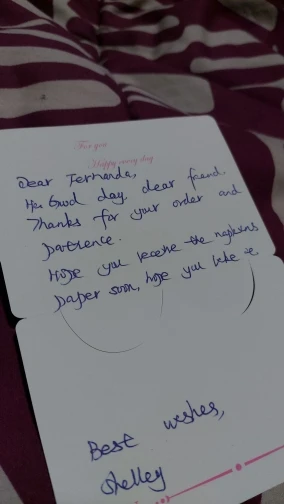 For you
Happy every day
Dear Fernanda,
Good day, dear friend.
Thanks for your order and
patience.
Hope you receive the napkins
paper soon, hope you like
Best wishes,
Shelley